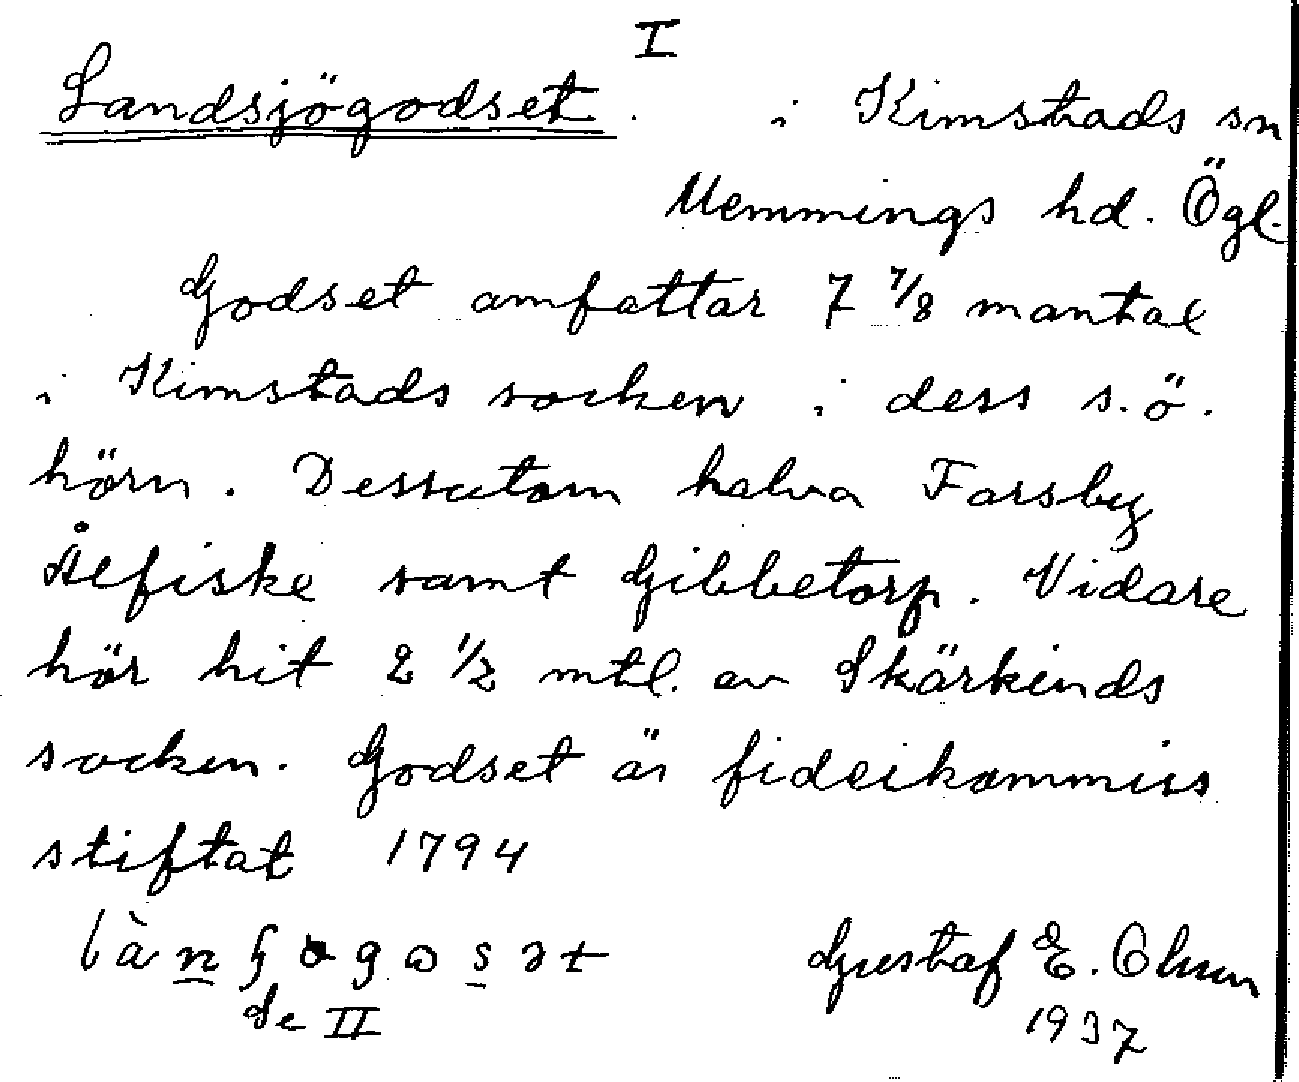 I
Landsjögodset. i Kimstads sn
Memmings hd. Ögl.
Godset omfattar 7 7/8 mantal
i Kimstads socken i dess s.ö.
hörn. Dessutom halva Forsby
Ålfiske samt Gibbetorp. Vidare
hör hit 2 1/2 mtl. av Skärkinds
socken. Godset är fideikommiss
stiftat 1794
Gustaf E. Olson
Se II
1937